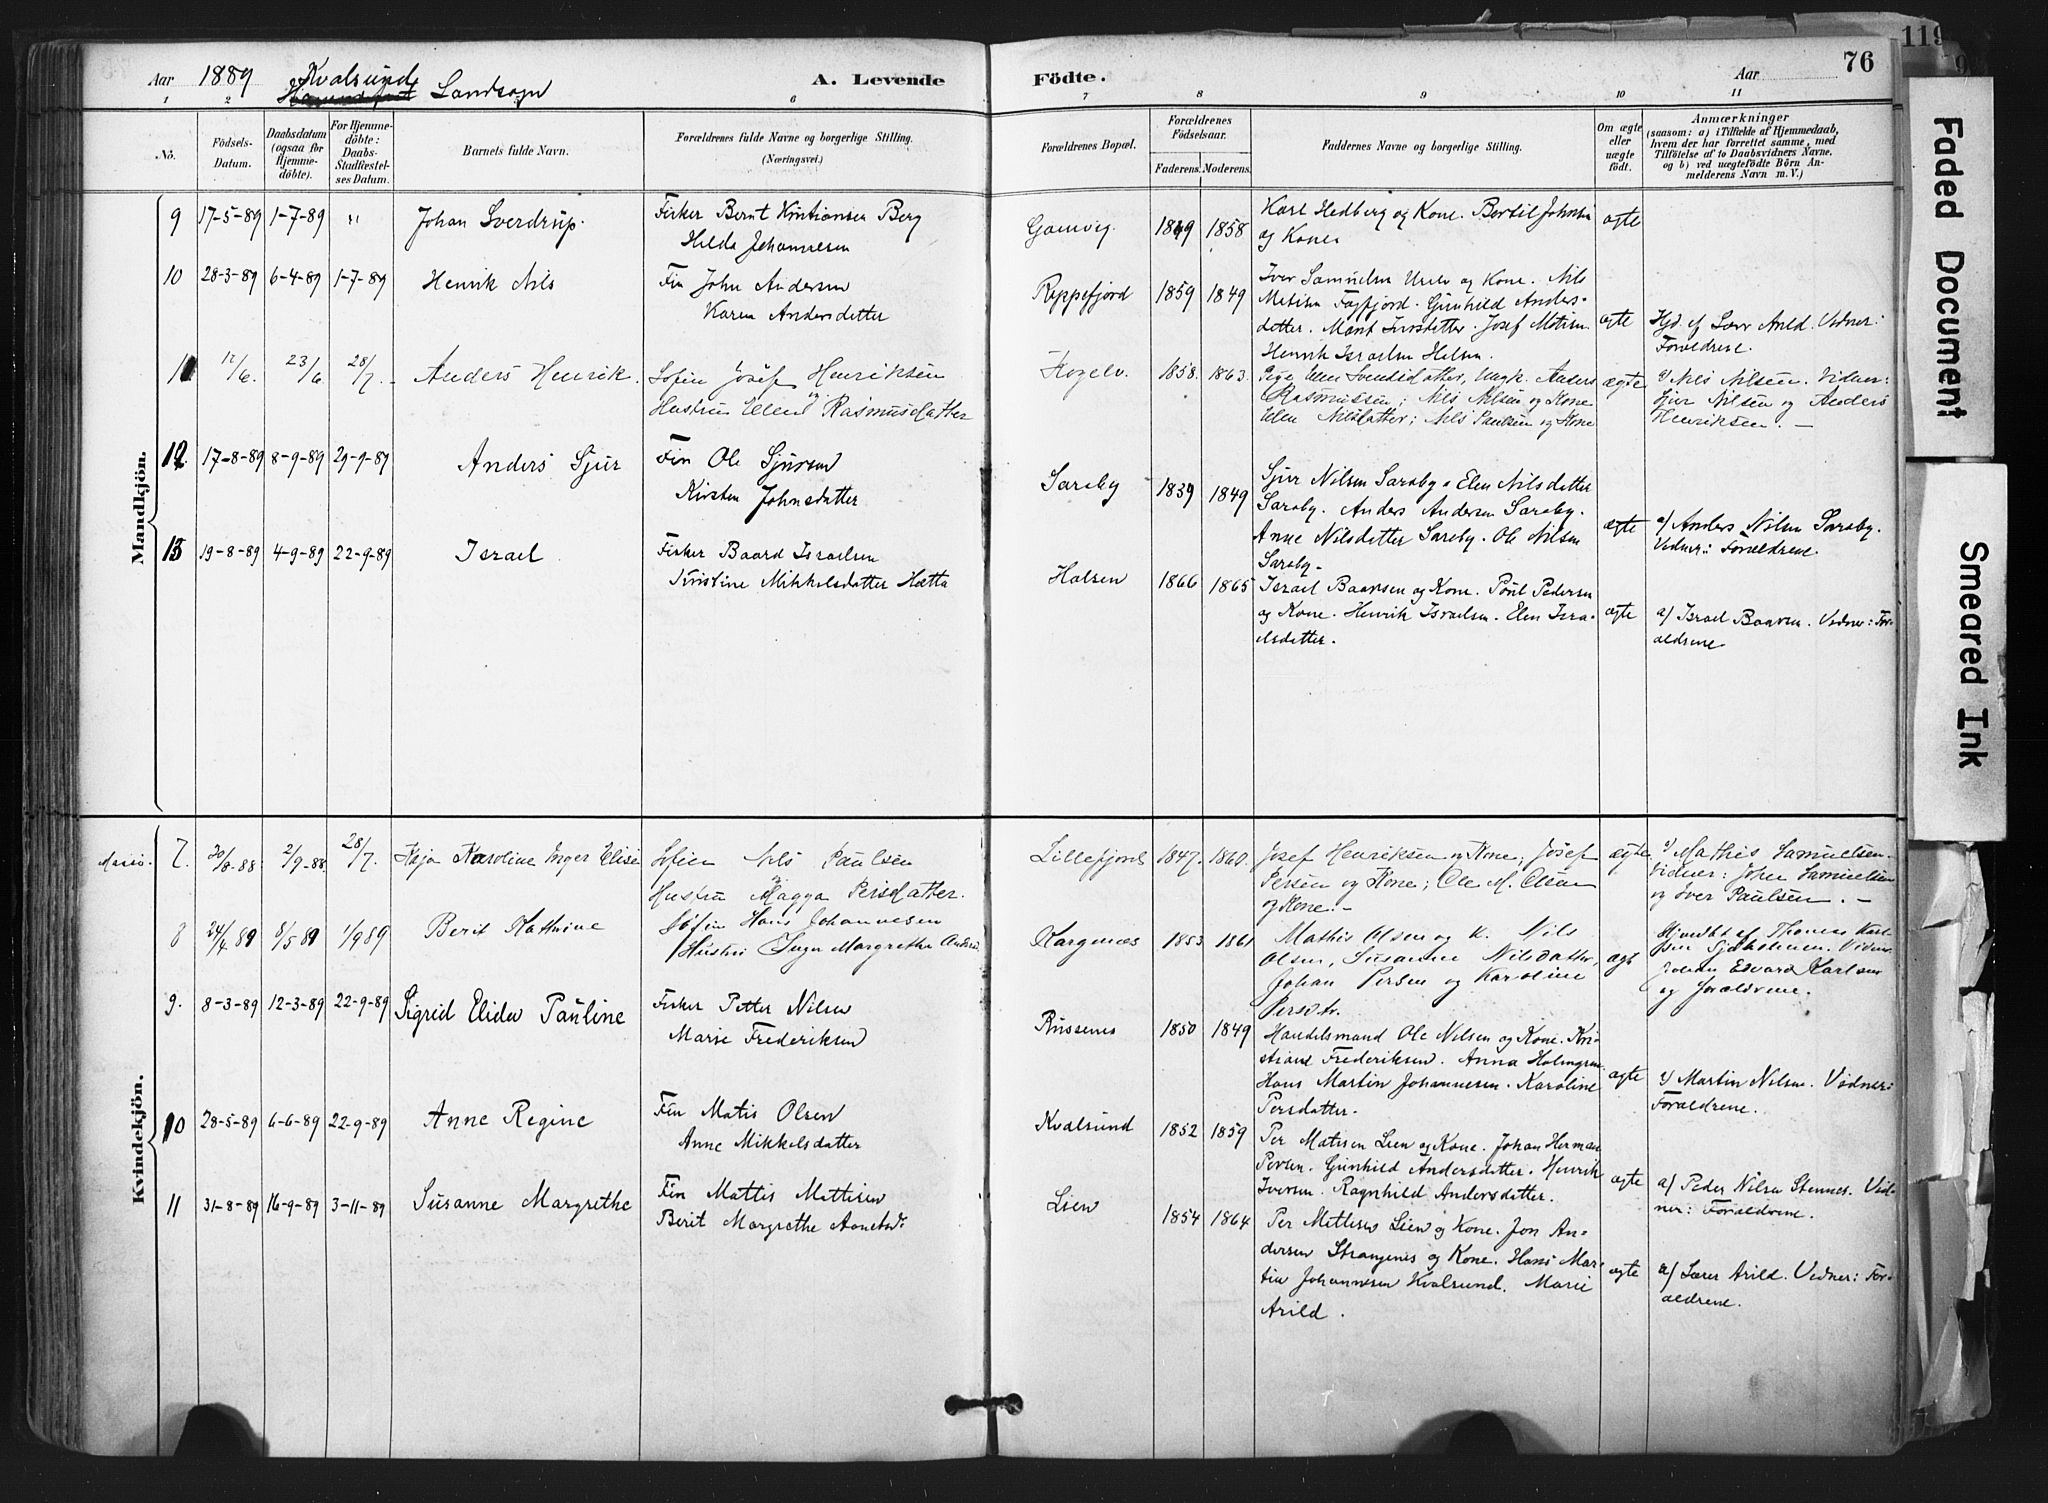 Aar 1889 Kvalsund Landsogn
A. Levende
Födte.
Aar
76
119
1 2 6 7 8 9 10 11
No.
Födsels-Datum.
Daabsdatum (ogsaa for Hjemmedöbte).
For Hjemmedöbte: Daabs-Stadfæstelses Datum.
Barnets fulde Navn.
Forældrenes fulde Navne og borgerlige Stilling.
(Næringsvei.)
Forældrenes Bopæl.
Forældrenes Födselsaar.
Faderens. Moderens.
Faddernes Navne og borgerlige Stilling.
Om ægte eller uægte födt.
Anmærkninger
(saasom: a) i Tilfælde af Hjemmedaab,
hvem der har forrettet samme, med
Tilföielse af to Daabsvidners Navne,
og b) ved uægtefödte Börn Anmelderens Navn m. V.)
Mandkjön.
9 17-5-89 1-7-89 " Johan Sverdrup.
Fisker Bernt Kristiansen Berg
Hilda Johannesen
Gamvig. 1849 1858
Karl Hedberg og Kone. Bertil Johnsen
og Kone.
ægte
10 28-3-89 6-4-89 1-7-89 Henrik Nils
Fin John Andersen
Karen Andersdatter
Reppefjord 1859 1849
Iver Samuelsen og Kone. Nils
Matisen Fægfjord. Gunhild Anders-
detter. Marit Iversdetter. Josef Matisen.
Henrik Israelsen Halsen.
ægte
Hjd. af Lærer Arild. Vidner:
Forældrene.
11 12/6. 23/6 28/7. Anders Henrik.
Søfin Josef Henriksen
og Hustru Ellen Rasmusdatter
Kogelv. 1858. 1863.
Pige Elen Svendsdatter, Ungk. Anders
Rasmussen; Nils Nilsen og Kone
Elen Nilsdatter; Nils Paulsen og Kone
ægte
a) Nils Nilsen. Vidner:
Sjur Nilsen og Anders
Henriksen. -
12. 17-8-89 8-9-89 29-9-89 Anders Sjur
Fin Ole Sjursen
Kirsten Johnsdatter
Saraby 1839 1849
Sjur Nilsen Saraby. Elen Nilsdetter
Saraby. Anders Andersen Saraby.
Anne Nilsdetter Saraby. Ole Nilsen
Saraby.
ægte
a) Anders Nilsen Saraby.
Vidner: Forældrene.
13 19-8-89 4-9-89 22-9-89 Israel
Fisker Baard Israelsen
Kristine Mikkelsdatter Hætta
Halsen 1866 1865
Israel Baarsen og Kone. Poul Pedersen
og Kone. Henrik Israelsen. Elen Isra-
elsdetter.
ægte
a) Israel Baarsen. Vidner: For-
ældrene
Kvindekjön.
7. 20/8-88 2/9-88. 28/7. Kaja Karoline Inger Elise
Søfin Nils Paulsen
og Hustru Magga Persdatter.
Lillefjord 1847. 1860.
Josef Henriksen og Kone; Josef
Persen og Kone; Ole M. Olsen
og Kone. -
ægte
a) Mathis Samuelsen.
Vidner: John Samuelsen
og Iver Paulsen. -
8 24/4 89 8/5 89 1/9 89 Berit Kathrine
Søfin Hans Johannesen
Hustru Inga Margrethe Anders
Kargenæs 1853 1861
Mathis Olsen og K. Nils
Olsen, Susanne Nilsdatter,
Johan Persen og Karoline
Persdtr.
ægt
Hjemdbt af Thomas Karl
sen Sjåholmen. Vidner
Johan Edvard Karlsen
og Forældrene.
9. 8-3-89 12-3-89 22-9-89 Sigrid Elida Pauline
Fisker Petter Nilsen
Marie Frederiksen
Russenes 1850 1849
Handelsmand Ole Nilsen og Kone. Kri-
stiane Frederiksen. Anna Holmgren.
Hans Martin Johannesen. Karoline
Persdatter.
ægte
a) Martin Nilsen. Vidner:
Forældrene.
10 28-5-89 6-6-89 22-9-89 Anne Regine
Fin Matis Olsen
Anne Mikkelsdatter
Kvalsund 1852 1859
Per Matisen Lien og Kone. Johan Herman
Persen. Gunhild Andersdetter. Henrik
Iversen. Ragnhild Andersdetter.
ægte
a) Peder Nilsen Stennes. Vid-
ner: Forældrene.
11 31-8-89 16-9-89 3-11-89 Susanne Margrethe
Fin Mattis Mattisen
Berit Margrethe
Lien 1854 1864
Per Mattisen Lien og Kone. Jon An-
dersen Strangenes og Kone. Hans Mar-
tin Johannesen Kvalsund. Marie
Arild.
ægte
a) Lærer Arild. Vidner: For-
ældrene.
Faded Document
Smeared Ink